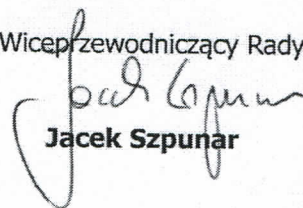 Wiceprzewodniczący Rady
Jacek Szpunar
Jacek Szpunar